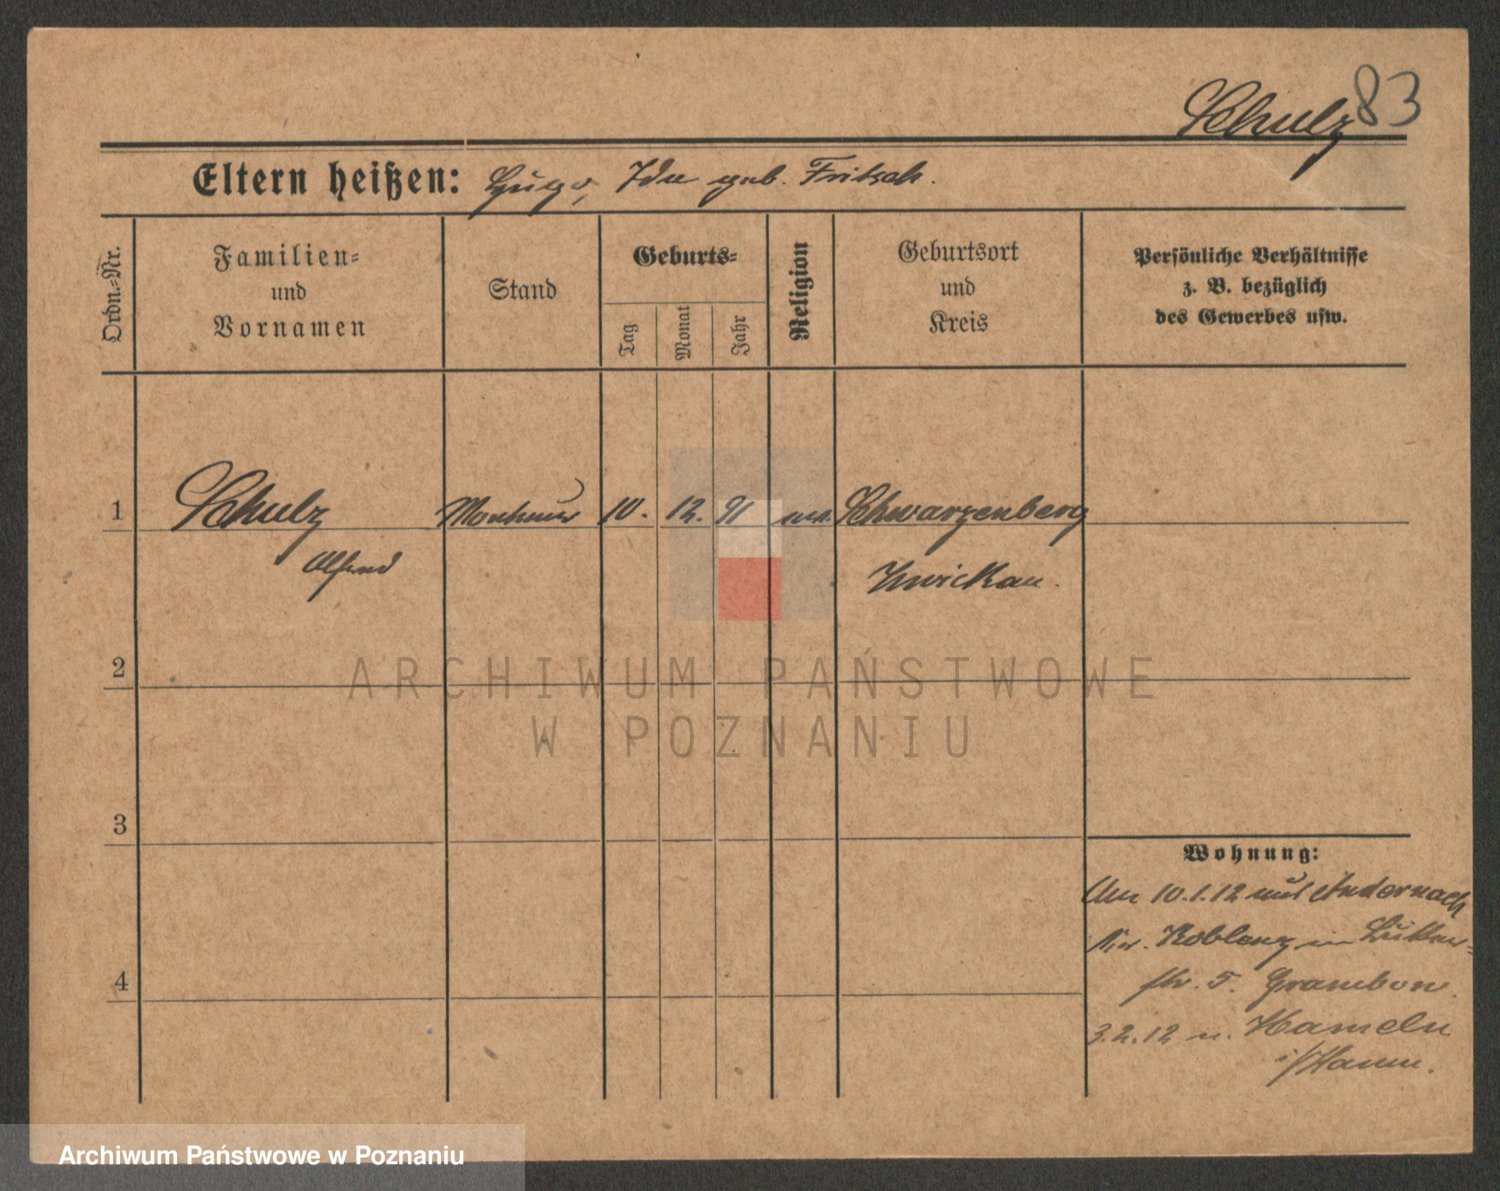 Schulz 83
Eltern heißen: Hugo, Ida geb. Fritsch.
Ordn.-Nr.
Familien-
und
Vornamen
Stand
Geburts-
Tag
Monat
Jahr
Religion
Geburtsort
und
Kreis
Persönliche Verhältnisse
z. B. bezüglich
des Gewerbes usw.
1 Schulz Monteur 10. 12. 91 Schwarzenberg
Alfred Zwickau.
2
ARCHIWUM PAŃSTWOWE
W POZNANIU
3
Wohnung:
Am 10.1.12 aus Andernach
Kr. Koblenz in
4
str. 5.
3.2.12 n. Hameln
i/Hann.
Archiwum Państwowe w Poznaniu